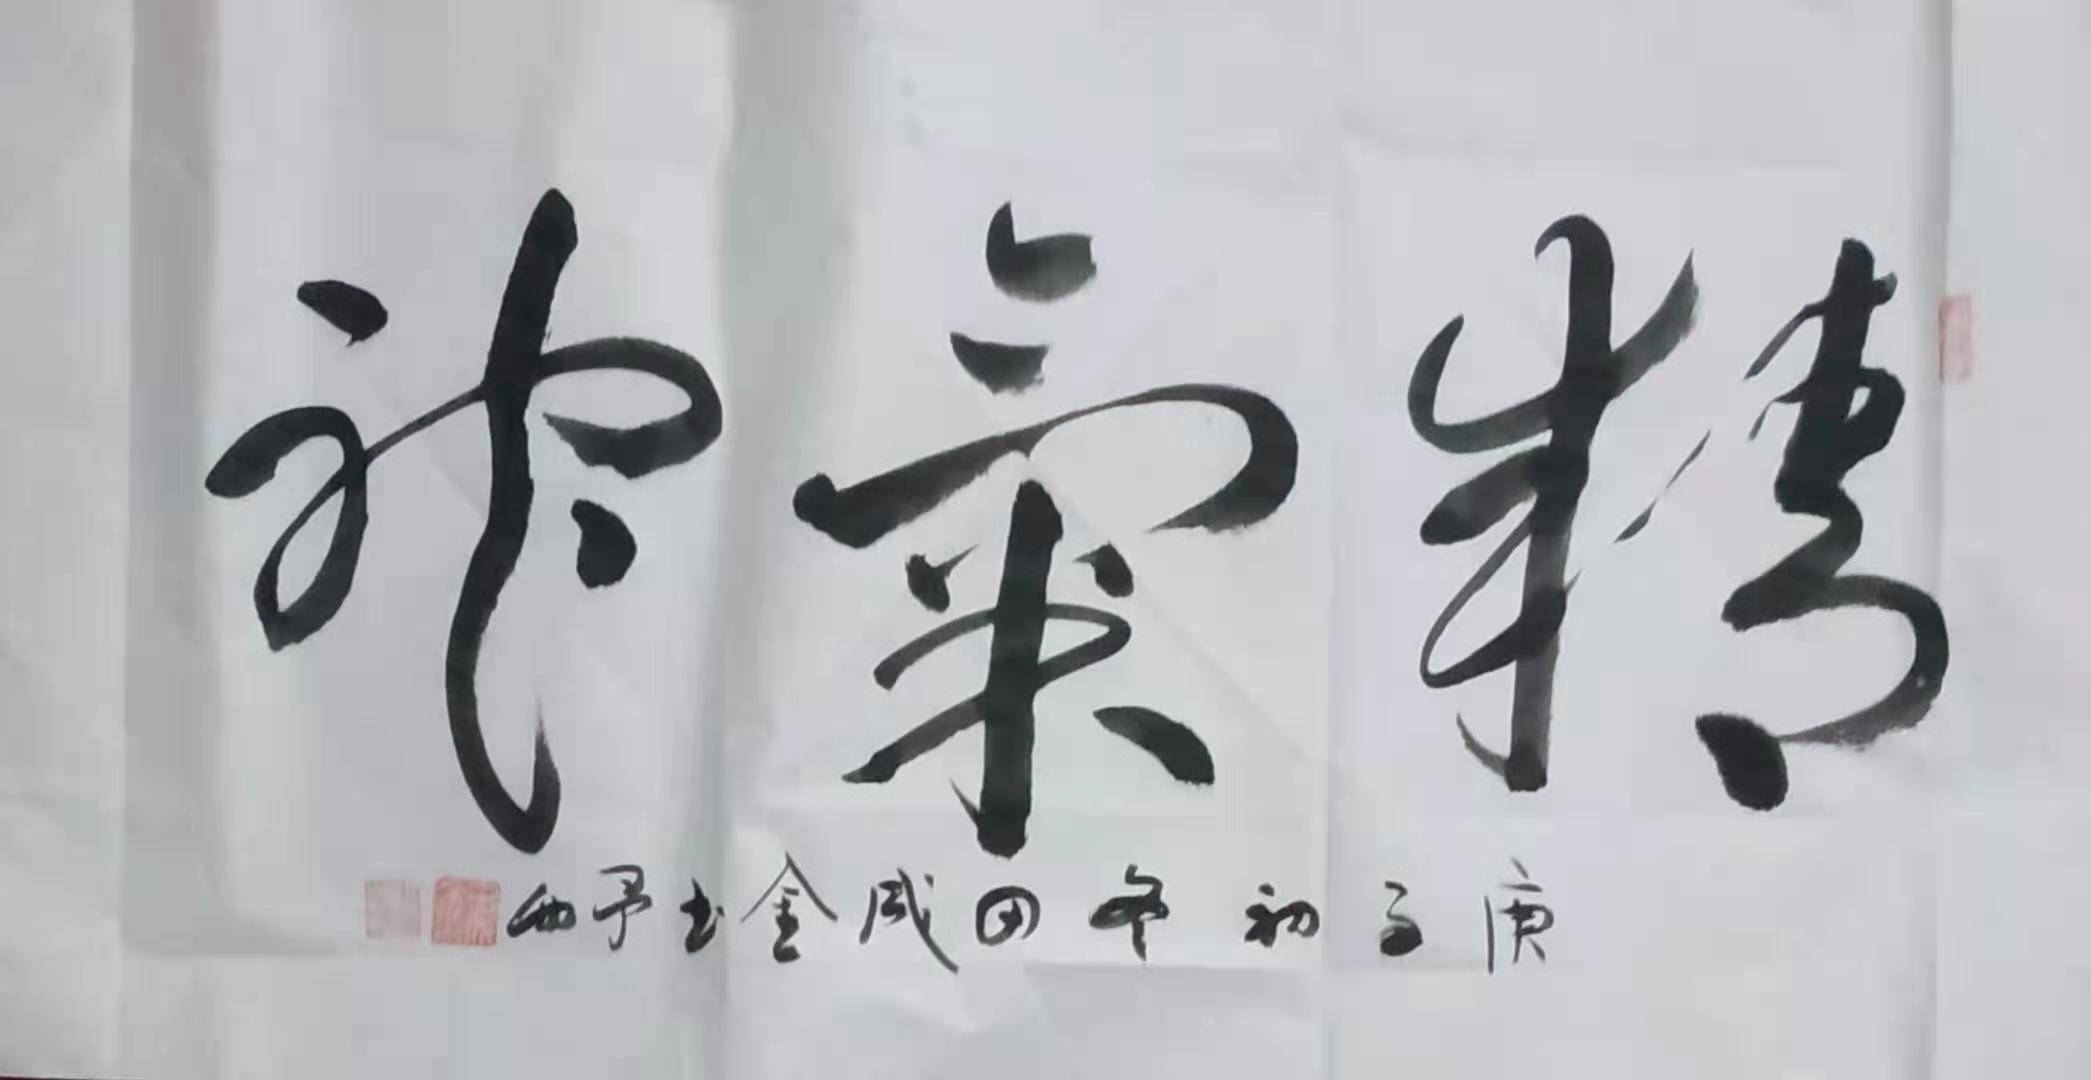 精氣神
庚子初冬田成金书于西